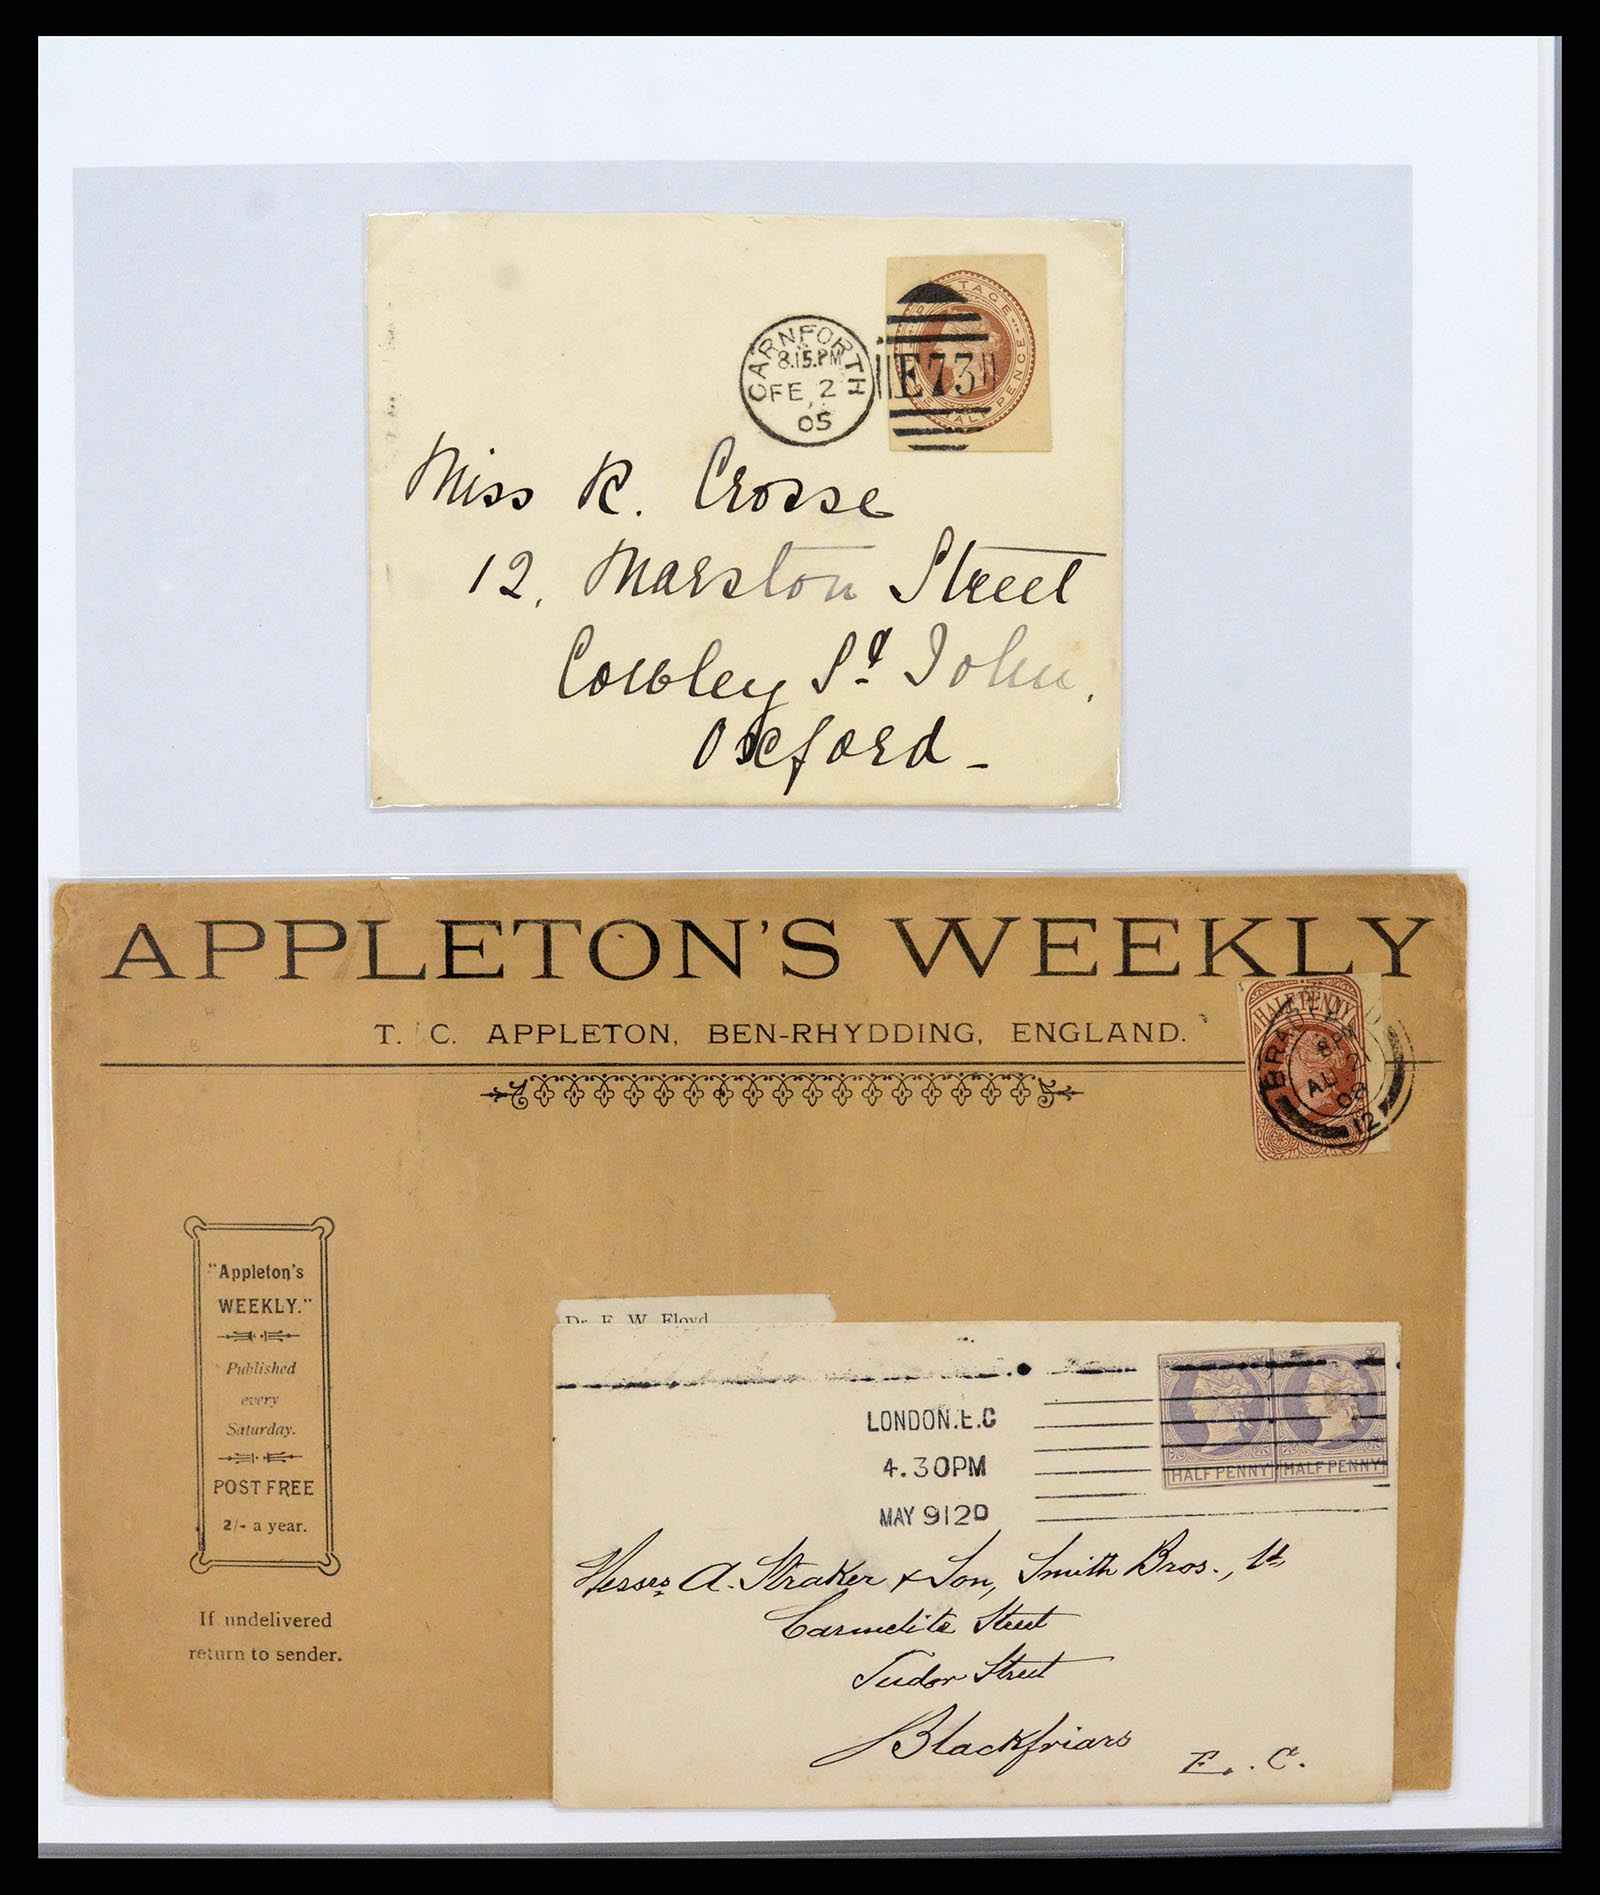 CARNFORTH
8.15.PM
FE 2
05
E73
Miss R. Crosse
12, Marston Street
Cowley St. John,
Oxford -
APPLETON'S WEEKLY
T. C. APPLETON, BEN-RHYDDING, ENGLAND.
HALFPENNY
AU 21
12
"Appleton's
WEEKLY."
Published
every
Saturday.
POST FREE
2/- a year.
If undelivered
return to sender.
Dr. F. W. Floyd
LONDON.E.C
4.30PM
MAY 9 12D
HALFPENNY HALFPENNY
Messrs A. Straker & Son, Smith Bros., Ld
Carmelite Street
Tudor Street
Blackfriars
E.C.